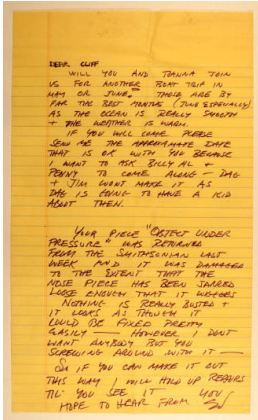 DEAR CLIFF
WILL YOU AND JOANNA JOIN
US FOR ANOTHER BOAT TRIP IN
MAY OR JUNE. THOSE ARE BY
FAR THE BEST MONTHS (JUNE ESPECIALLY)
AS THE OCEAN IS REALLY SMOOTH
+ THE WEATHER IS WARM.
IF YOU WILL COME PLEASE
SEND ME THE APPROXIMATE DATE
THAT IS OK WITH YOU BECAUSE
I WANT TO ASK BILLY AL +
PENNY TO COME ALONG -
+ JIM WONT MAKE IT AS
IS GOING TO HAVE A KID
ABOUT THEN.
YOUR PIECE "OBJECT UNDER
PRESSURE" WAS RETURNED
FROM THE SMITHSONIAN LAST
WEEK AND IT WAS DAMAGED
TO THE EXTENT THAT THE
NOSE PIECE HAS BEEN JARRED
LOOSE ENOUGH THAT IT WIGGLES
NOTHING IS REALLY BUSTED +
IT LOOKS AS THOUGH IT
COULD BE FIXED PRETTY
EASILY - HOWEVER I DONT
WANT ANYBODY BUT YOU
SCREWING AROUND WITH IT -
SO IF YOU CAN MAKE IT OUT
THIS WAY I WILL HOLD UP REPAIRS
TIL YOU SEE IT YOU
HOPE TO HEAR FROM